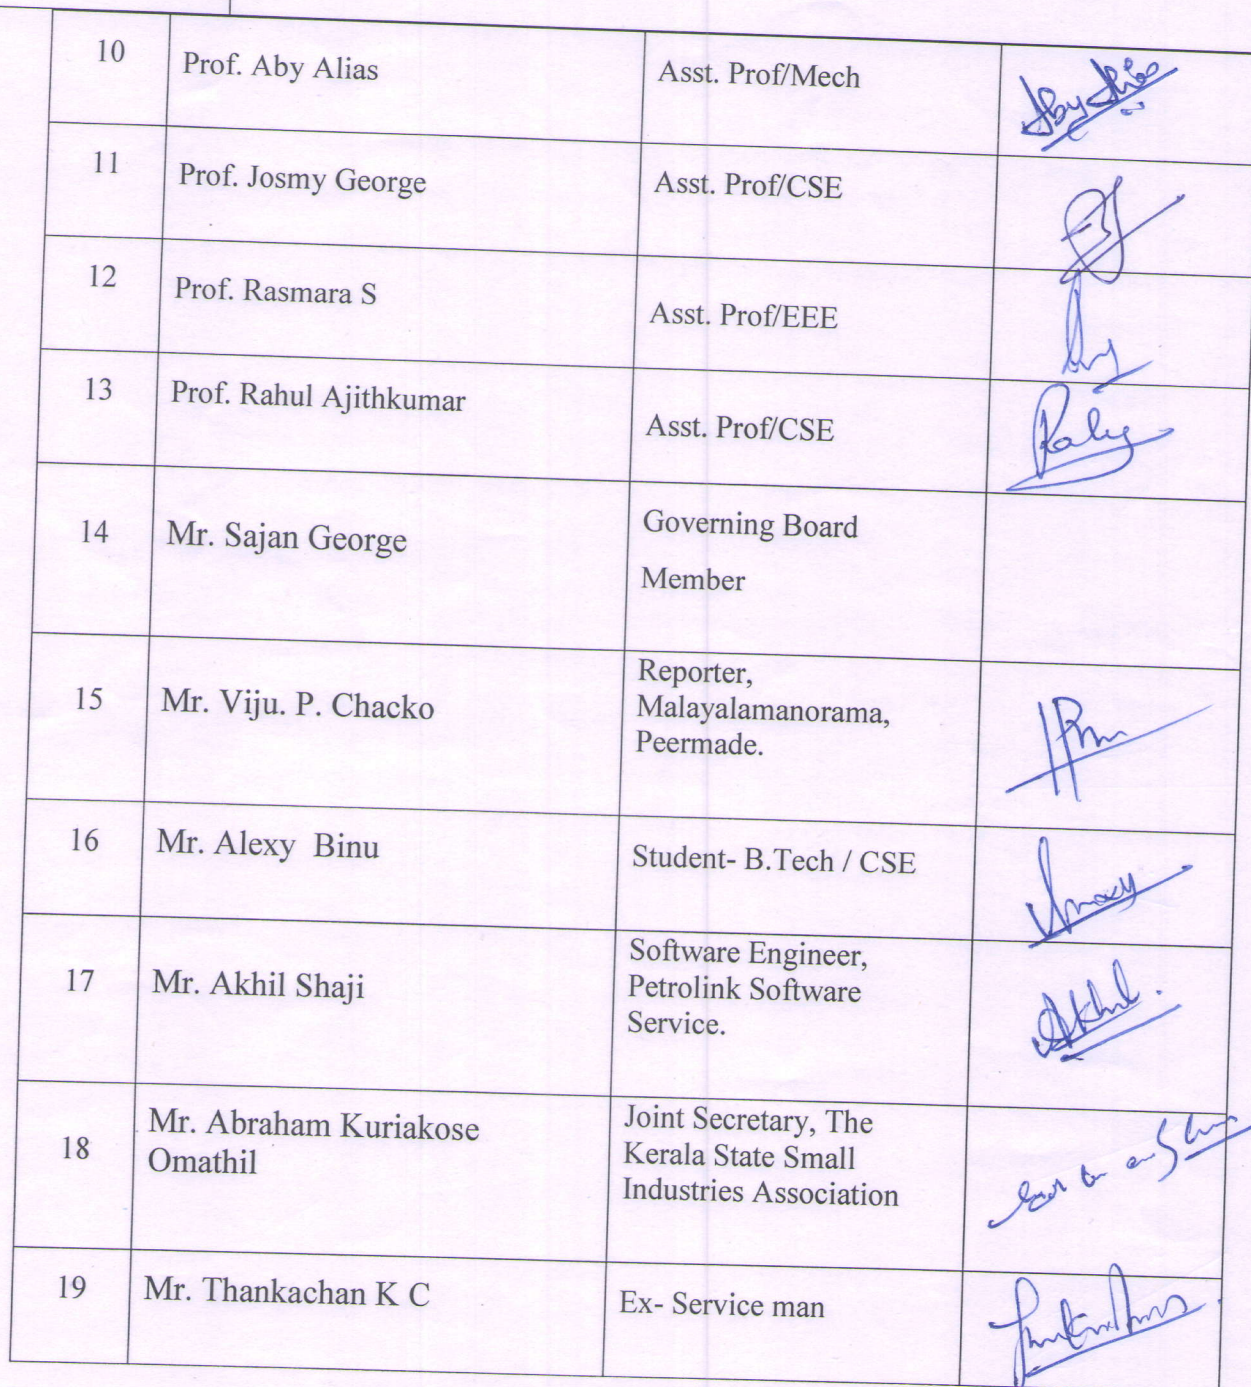 10 Prof. Aby Alias Asst. Prof/Mech Aby Alias
11 Prof. Josmy George Asst. Prof/CSE
12 Prof. Rasmara S Asst. Prof/EEE
13 Prof. Rahul Ajithkumar Asst. Prof/CSE
14 Mr. Sajan George Governing Board
Member
15 Mr. Viju. P. Chacko Reporter,
Malayalamanorama,
Peermade.
16 Mr. Alexy Binu Student- B.Tech / CSE
17 Mr. Akhil Shaji Software Engineer,
Petrolink Software
Service.
Akhil.
18 Mr. Abraham Kuriakose
Omathil
Joint Secretary, The
Kerala State Small
Industries Association
19 Mr. Thankachan K C Ex- Service man